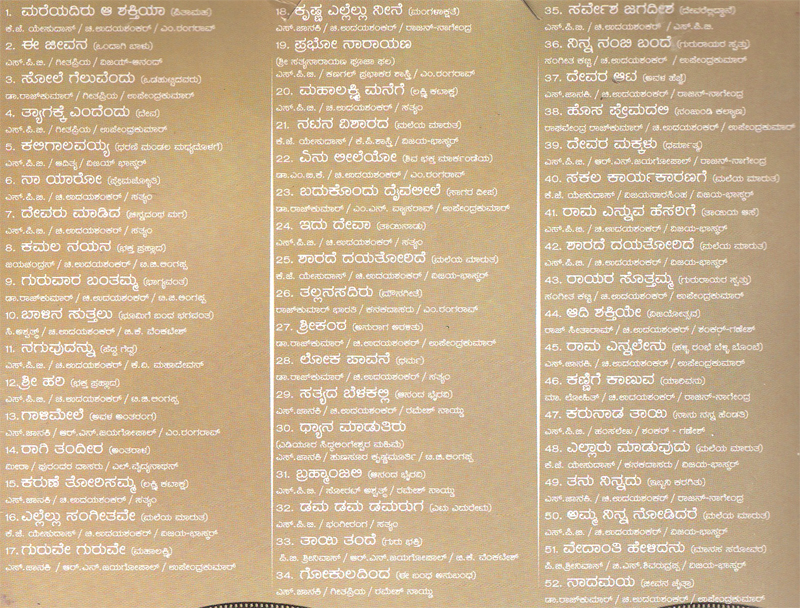 1. ಮರೆಯದಿರು ಆ ಶಕ್ತಿಯಾ (ಪಿತಾಮಹ)
ಕೆ.ಜೆ. ಯೇಸುದಾಸ್ / ಚಿ.ಉದಯಶಂಕರ್ / ಎಂ.ರಂಗರಾವ್
2. ಈ ಜೀವನ (ಒಂದಾಗಿ ಬಾಳು)
ಎಸ್.ಪಿ.ಬಿ. / ಗೀತಪ್ರಿಯ / ವಿಜಯ್-ಆನಂದ್
3. ಸೋಲೆ ಗೆಲುವೆಂದು (ಒಡಹುಟ್ಟಿದವರು)
ಡಾ.ರಾಜ್‌ಕುಮಾರ್ / ಗೀತಪ್ರಿಯ / ಉಪೇಂದ್ರಕುಮಾರ್
4. ತ್ಯಾಗಕ್ಕೆ ಎಂದೆಂದು (ದೇವ)
ಎಸ್.ಪಿ.ಬಿ. / ಗೀತಪ್ರಿಯ / ಉಪೇಂದ್ರಕುಮಾರ್
5. ಕಲಿಗಾಲವಯ್ಯ (ಧರಣಿ ಮಂಡಲ ಮಧ್ಯದೊಳಗೆ)
ಎಸ್.ಪಿ.ಬಿ. / ಆದಿತ್ಯ / ವಿಜಯ್ ಭಾಸ್ಕರ್
6. ನಾ ಯಾರೋ (ಪ್ರೇಮಜ್ಯೋತಿ)
ಎಸ್.ಪಿ.ಬಿ. / ಚಿ.ಉದಯಶಂಕರ್ / ಸತ್ಯಂ
7. ದೇವರು ಮಾಡಿದ (ಚಿನ್ನದಂಥ ಮಗ)
ಎಸ್.ಪಿ.ಬಿ. / ಚಿ.ಉದಯಶಂಕರ್ / ಸತ್ಯಂ
8. ಕಮಲ ನಯನ (ಭಕ್ತ ಪ್ರಹ್ಲಾದ)
ಜಯಚಂದ್ರನ್ / ಚಿ.ಉದಯಶಂಕರ್ / ಟಿ.ಜಿ.ಲಿಂಗಪ್ಪ
9. ಗುರುವಾರ ಬಂತಮ್ಮ (ಭಾಗ್ಯವಂತ)
ಡಾ.ರಾಜ್‌ಕುಮಾರ್ / ಚಿ.ಉದಯಶಂಕರ್ / ಟಿ.ಜಿ.ಲಿಂಗಪ್ಪ
10. ಬಾಳಿನ ಸುತ್ತಲು (ಭೂಮಿಗೆ ಬಂದ ಭಗವಂತ)
ಸಿ.ಅಶ್ವತ್ಥ್ / ಚಿ.ಉದಯಶಂಕರ್ / ಜಿ.ಕೆ. ವೆಂಕಟೇಶ್
11. ನಗುವುದನ್ನು (ಪೆದ್ದ ಗೆದ್ದ)
ಎಸ್.ಜಾನಕಿ / ಚಿ.ಉದಯಶಂಕರ್ / ಕೆ.ವಿ. ಮಹಾದೇವನ್
12. ಶ್ರೀ ಹರಿ (ಭಕ್ತ ಪ್ರಹ್ಲಾದ)
ಎಸ್.ಪಿ.ಬಿ. / ಚಿ.ಉದಯಶಂಕರ್ / ಟಿ.ಜಿ.ಲಿಂಗಪ್ಪ
13. ಗಾಳಿಮೇಲೆ (ಅವಳ ಅಂತರಂಗ)
ಎಸ್.ಜಾನಕಿ / ಆರ್.ಎನ್.ಜಯಗೋಪಾಲ್ / ಎಂ.ರಂಗರಾವ್
14. ರಾಗಿ ತಂದೀರ (ಅಂತರಾಳ)
ಮೀರಾ / ಪುರಂದರ ದಾಸರು / ಎಲ್.ವೈದ್ಯನಾಥನ್
15. ಕರುಣೆ ತೋರಿಸಮ್ಮ (ಲಕ್ಷ್ಮಿ ಕಟಾಕ್ಷ)
ಎಸ್.ಜಾನಕಿ / ಚಿ.ಉದಯಶಂಕರ್ / ಸತ್ಯಂ
16. ಎಲ್ಲೆಲ್ಲು ಸಂಗೀತವೇ (ಮಲೆಯ ಮಾರುತ)
ಕೆ.ಜೆ. ಯೇಸುದಾಸ್ / ಚಿ.ಉದಯಶಂಕರ್ / ವಿಜಯ-ಭಾಸ್ಕರ್
17. ಗುರುವೇ ಗುರುವೇ (ಮಹಾಲಕ್ಷ್ಮಿ)
ಎಸ್.ಜಾನಕಿ / ಆರ್.ಎನ್.ಜಯಗೋಪಾಲ್ / ಉಪೇಂದ್ರಕುಮಾರ್
18. ಕೃಷ್ಣ ಎಲ್ಲೆಲ್ಲು ನೀನೆ (ಮಂಗಳಾಕ್ಷತೆ)
ಎಸ್.ಜಾನಕಿ / ಚಿ.ಉದಯಶಂಕರ್ / ರಾಜನ್-ನಾಗೇಂದ್ರ
19. ಪ್ರಭೋ ನಾರಾಯಣ
(ಶ್ರೀ ಸತ್ಯನಾರಾಯಣ ಪೂಜಾ ಫಲ)
ಎಸ್.ಪಿ.ಬಿ. / ಕಣಗಲ್ ಪ್ರಭಾಕರ ಶಾಸ್ತ್ರಿ / ಎಂ.ರಂಗರಾವ್
20. ಮಹಾಲಕ್ಷ್ಮಿ ಮನೆಗೆ (ಲಕ್ಷ್ಮಿ ಕಟಾಕ್ಷ)
ಎಸ್.ಪಿ.ಬಿ. / ಚಿ.ಉದಯಶಂಕರ್ / ಸತ್ಯಂ
21. ನಟನ ವಿಶಾರದ (ಮಲೆಯ ಮಾರುತ)
ಕೆ.ಜೆ. ಯೇಸುದಾಸ್ / ಕೆ.ಪಿ.ಶಾಸ್ತ್ರಿ / ವಿಜಯ-ಭಾಸ್ಕರ್
22. ಏನು ಲೀಲೆಯೋ (ಶಿವ ಭಕ್ತ ಮಾರ್ಕಂಡೇಯ)
ಡಾ.ಎಂ.ಬಿ.ಕೆ. / ಚಿ.ಉದಯಶಂಕರ್ / ಎಂ.ರಂಗರಾವ್
23. ಬದುಕೊಂದು ದೈವಲೀಲೆ (ಸಾಗರ ದೀಪ)
ಡಾ.ರಾಜ್‌ಕುಮಾರ್ / ಎಂ.ಎನ್. ವ್ಯಾಸರಾವ್ / ಉಪೇಂದ್ರಕುಮಾರ್
24. ಇದು ದೇವಾ (ತಾಯಿನಾಡು)
ಎಸ್.ಪಿ.ಬಿ. / ಚಿ.ಉದಯಶಂಕರ್ / ಸತ್ಯಂ
25. ಶಾರದೆ ದಯತೋರಿದೆ (ಮಲೆಯ ಮಾರುತ)
ಕೆ.ಜೆ. ಯೇಸುದಾಸ್ / ಚಿ.ಉದಯಶಂಕರ್ / ವಿಜಯ-ಭಾಸ್ಕರ್
26. ತಲ್ಲನಸದಿರು (ಮೌನಗೀತೆ)
ರಾಜ್‌ಕುಮಾರ್ ಭಾರತಿ / ಕನಕದಾಸರು / ಎಂ.ರಂಗರಾವ್
27. ಶ್ರೀಕಂಠ (ಅನುರಾಗ ಅರಳಿತು)
ಡಾ.ರಾಜ್‌ಕುಮಾರ್ / ಚಿ.ಉದಯಶಂಕರ್ / ಉಪೇಂದ್ರಕುಮಾರ್
28. ಲೋಕ ಪಾವನೆ (ಧರ್ಮ)
ಡಾ.ರಾಜ್‌ಕುಮಾರ್ / ಚಿ.ಉದಯಶಂಕರ್ / ಸತ್ಯಂ
29. ಸತ್ಯದ ಬೆಳಕಲ್ಲಿ (ಆನಂದ ಭೈರವಿ)
ಎಸ್.ಜಾನಕಿ / ಚಿ.ಉದಯಶಂಕರ್ / ರಮೇಶ್ ನಾಯ್ಡು
30. ಧ್ಯಾನ ಮಾಡುತಿರು
(ಎಡಿಯೂರ ಸಿದ್ಧಲಿಂಗೇಶ್ವರ ಮಹಿಮೆ)
ಎಸ್.ಜಾನಕಿ / ಹುಣಸೂರ ಕೃಷ್ಣಮೂರ್ತಿ / ಟಿ.ಜಿ.ಲಿಂಗಪ್ಪ
31. ಬ್ರಹ್ಮಾಂಜಲಿ (ಆನಂದ ಭೈರವಿ)
ಎಸ್.ಪಿ.ಬಿ. / ಸೋರಟ್ ಅಶ್ವತ್ಥ್ / ರಮೇಶ್ ನಾಯ್ಡು
32. ಡಮ ಡಮ ಡಮರುಗ (ಎಮ ಎಮರೇಟು)
ಎಸ್.ಪಿ.ಬಿ. / ಭಂಗೀರಂಗ / ಸತ್ಯಂ
33. ತಾಯಿ ತಂದೆ (ಗುರು ಭಕ್ತಿ)
ಪಿ.ಬಿ. ಶ್ರೀನಿವಾಸ್ / ಆರ್.ಎನ್.ಜಯಗೋಪಾಲ್ / ಜಿ.ಕೆ. ವೆಂಕಟೇಶ್
34. ಗೋಕುಲದಿಂದ (ಈ ಬಂಧ ಅನುಬಂಧ)
ಎಸ್.ಜಾನಕಿ / ಗೀತಪ್ರಿಯ / ರಮೇಶ್ ನಾಯ್ಡು
35. ಸರ್ವೇಶ ಜಗದೀಶ (ದೇವರೆಲ್ಲಿದ್ದಾನೆ)
ಎಸ್.ಪಿ.ಬಿ. / ಚಿ.ಉದಯಶಂಕರ್ / ಎಸ್.ಪಿ.ಬಿ.
36. ನಿನ್ನ ನಂಬಿ ಬಂದೆ (ಗುರುರಾಯರ ಸ್ವತ್ತು)
ಸಂಗೀತ ಕಟ್ಟಿ / ಚಿ.ಉದಯಶಂಕರ್ / ಉಪೇಂದ್ರಕುಮಾರ್
37. ದೇವರ ಆಟ (ಅವಳ ಹೆಜ್ಜೆ)
ಎಸ್.ಜಾನಕಿ. / ಚಿ.ಉದಯಶಂಕರ್ / ರಾಜನ್-ನಾಗೇಂದ್ರ
38. ಹೊಸ ಪ್ರೇಮದಲಿ (ನಂಜುಂಡಿ ಕಲ್ಯಾಣ)
ರಾಘವೇಂದ್ರ ರಾಜ್‌ಕುಮಾರ್ / ಚಿ.ಉದಯಶಂಕರ್ / ಉಪೇಂದ್ರಕುಮಾರ್
39. ದೇವರ ಮಕ್ಕಳು (ಧರ್ಮಾತ್ಮ)
ಎಸ್.ಪಿ.ಬಿ. / ಆರ್.ಎನ್.ಜಯಗೋಪಾಲ್ / ರಾಜನ್-ನಾಗೇಂದ್ರ
40. ಸಕಲ ಕಾರ್ಯಕಾರಣಗೆ (ಮಲೆಯ ಮಾರುತ)
ಕೆ.ಜೆ. ಯೇಸುದಾಸ್ / ವಿಜಯನಾರಸಿಂಹ / ವಿಜಯ-ಭಾಸ್ಕರ್
41. ರಾಮ ಎನ್ನುವ ಹೆಸರಿಗೆ (ತಾಯಿಯ ಆಸೆ)
ಎಸ್.ಪಿ.ಬಿ. / ಚಿ.ಉದಯಶಂಕರ್ / ವಿಜಯ-ಭಾಸ್ಕರ್
42. ಶಾರದೆ ದಯತೋರಿದೆ (ಮಲೆಯ ಮಾರುತ)
ಎಸ್.ಪಿ.ಬಿ. / ಚಿ.ಉದಯಶಂಕರ್ / ವಿಜಯ-ಭಾಸ್ಕರ್
43. ರಾಯರ ಸೊತ್ತಮ್ಮ (ಗುರುರಾಯರ ಸ್ವತ್ತು)
ಸಂಗೀತ ಕಟ್ಟಿ / ಚಿ.ಉದಯಶಂಕರ್ / ಉಪೇಂದ್ರಕುಮಾರ್
44. ಆದಿ ಶಕ್ತಿಯೇ (ವಿಜಯೋತ್ಸವ)
ರಾಜ್ ಸೀತಾರಾಮ್ / ಚಿ.ಉದಯಶಂಕರ್ / ಶಂಕರ್-ಗಣೇಶ್
45. ರಾಮ ಎನ್ನಲೇನು (ಹಳ್ಳಿ ರಂಭೆ ಬೆಳ್ಳಿ ಬೊಂಬೆ)
ಎಸ್.ಜಾನಕಿ. / ಚಿ.ಉದಯಶಂಕರ್ / ಉಪೇಂದ್ರಕುಮಾರ್
46. ಕಣ್ಣಿಗೆ ಕಾಣುವ (ಯಾರಿವನು)
ಮಾ. ಲೋಹಿತ್ / ಚಿ.ಉದಯಶಂಕರ್ / ರಾಜನ್-ನಾಗೇಂದ್ರ
47. ಕರುನಾಡ ತಾಯಿ (ನಾನು ನನ್ನ ಹೆಂಡತಿ)
ಎಸ್.ಪಿ.ಬಿ. / ಹಂಸಲೇಖ / ಶಂಕರ್ - ಗಣೇಶ್
48. ಎಲ್ಲಾರು ಮಾಡುವುದು (ಮಲೆಯ ಮಾರುತ)
ಕೆ.ಜೆ. ಯೇಸುದಾಸ್ / ಕನಕದಾಸರು / ವಿಜಯ-ಭಾಸ್ಕರ್
49. ತನು ನಿನ್ನದು (ಇಬ್ಬನಿ ಕರಗಿತು)
ಎಸ್.ಜಾನಕಿ. / ಚಿ.ಉದಯಶಂಕರ್ / ರಾಜನ್-ನಾಗೇಂದ್ರ
50. ಅಮ್ಮ ನಿನ್ನ ನೋಡಿದರೆ (ಮಲೆಯ ಮಾರುತ)
ಎಸ್.ಪಿ.ಬಿ. / ಚಿ.ಉದಯಶಂಕರ್ / ವಿಜಯ-ಭಾಸ್ಕರ್
51. ವೇದಾಂತಿ ಹೇಳಿದನು (ಮಾನಸ ಸರೋವರ)
ಪಿ.ಬಿ.ಶ್ರೀನಿವಾಸ್ / ಜಿ.ಎಸ್.ಶಿವರುದ್ರಪ್ಪ / ವಿಜಯ-ಭಾಸ್ಕರ್
52. ನಾದಮಯ (ಜೀವನ ಚೈತ್ರಾ)
ಡಾ.ರಾಜ್‌ಕುಮಾರ್ / ಚಿ.ಉದಯಶಂಕರ್ / ಉಪೇಂದ್ರಕುಮಾರ್